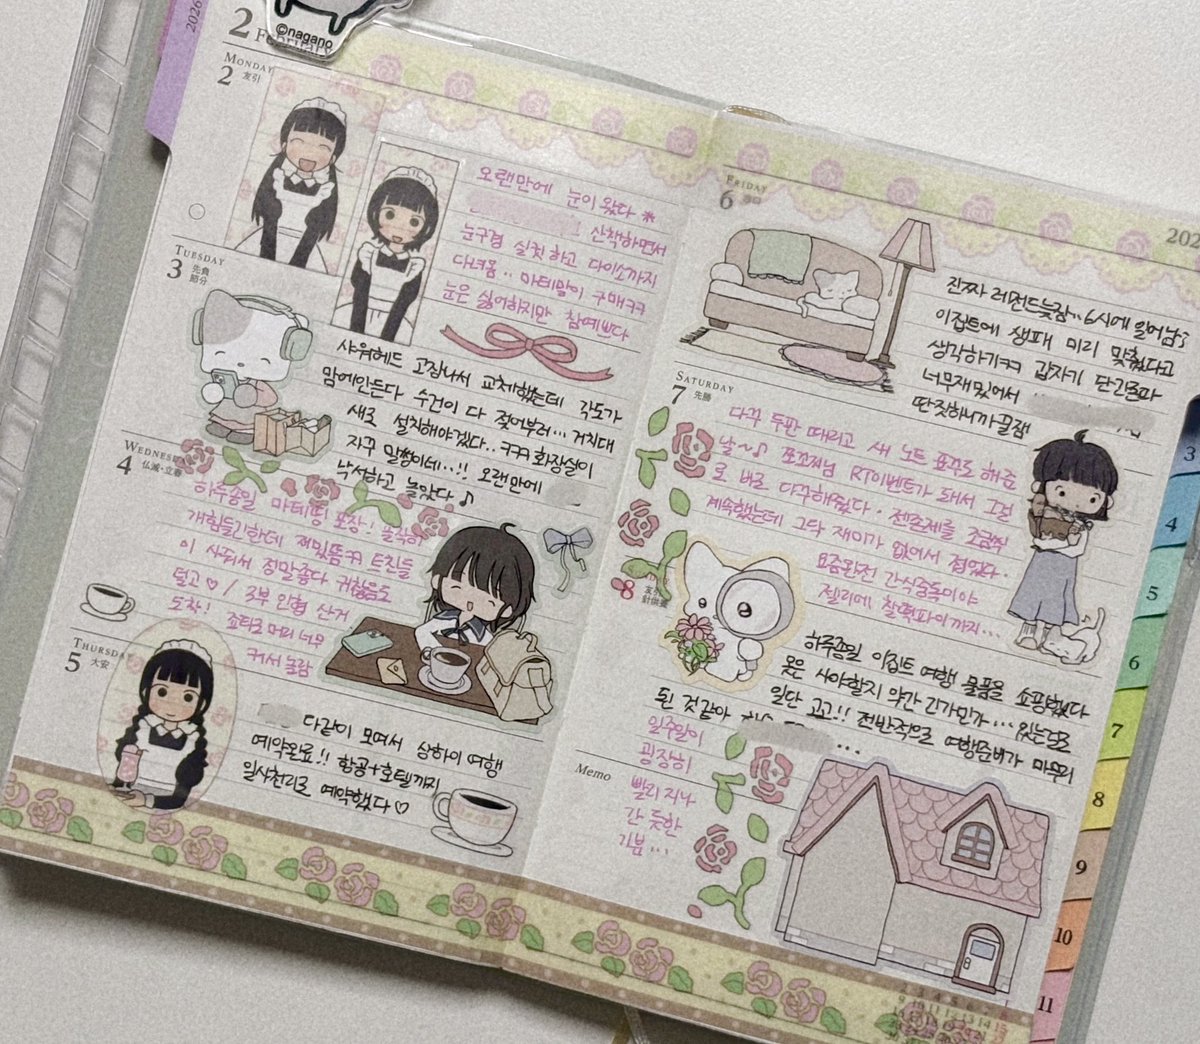 2026
©nagano
2 February
MONDAY
2 友引
오랜만에 눈이 왔다 *
산책하면서
눈구경 실컷 하고 다이소까지
다녀옴.. 마테많이 구매ㅋㅋ
눈은 싫어하지만 참예쁘다
TUESDAY
3 先負
節分
샤워헤드 고장나서 교체했는데 각도가
맘에안든다 수건이 다 젖어부러... 거치대
새로 설치해야겠다.. ㅋㅋㅋ 화장실이
자꾸 말썽이네...!! 오랜만에
낙서하고 놀았다 ♪
WEDNESDAY
4 仏滅・立春
하루종일 마테띵 포장!
개힘들긴한데 재밌뜸ㅋㅋ 트친들
이 사줘서 정말좋다 귀찮음도
덜고 ♡ / 3부 인형 산거
도착!
커서 놀람
THURSDAY
5 大安
다같이 모여서 상하이 여행
예약완료!! 항공+호텔까지
일사천리로 예약했다 ♡
FRIDAY
6
진짜 레전드늦잠.. 6시에 일어남;
이집트에 생패 미리 맞췄다고
생각하기ㅋㅋ 갑자기
너무재밌어서
딴짓하니까 꿀잼
SATURDAY
7 先勝
다꾸 두판 때리고 새 노트 표꾸도 해준
날~♪ 쪼꼬찌님 RT이벤트가 돼서 그걸
로 바로 다꾸해왔다. 젠존제를 조금씩
계속했는데 그닥 재미가 없어서 접었다.
요즘완전 간식중독이야
젤리에 찰떡파이까지...
8 友引
針供養
하루종일 이집트 여행 물품을 쇼핑했다
옷은 사야할지 약간 긴가민가... 있는걸로
일단 고고!! 전반적으로 여행준비가 마무리
된 것같아
...
Memo
일주일이
굉장히
빨리 지나
간 듯한
기분...
3
4
5
6
7
8
9
10
11